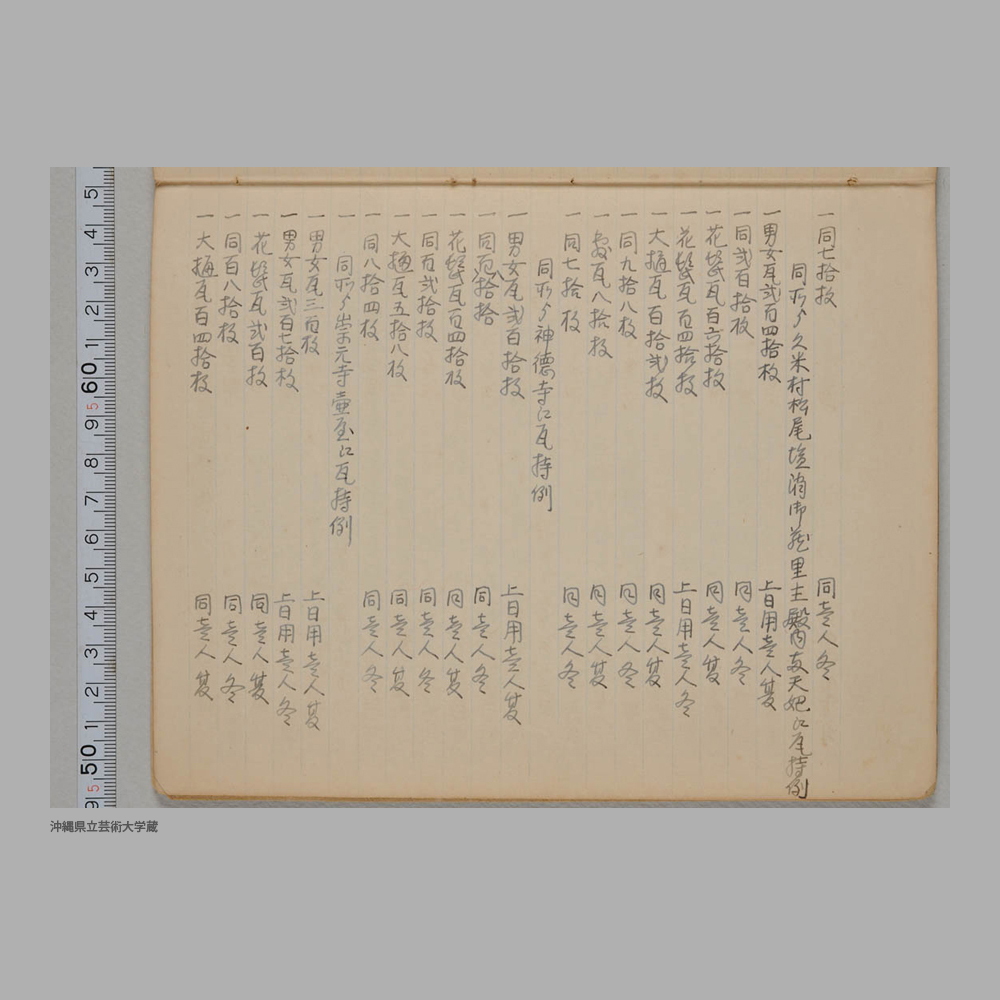 一同七拾枚 同壱人冬
同所ゟ久米村松尾塩消御蔵里主殿内友天妃江瓦持例
一男女瓦弐百四拾枚 上日用壱人夏
一同弐百拾枚 同壱人冬
一花髪瓦百六拾枚 同壱人夏
一花髪瓦百四拾枚 上日用壱人冬
一大樋瓦百拾弐枚 同壱人夏
一同九拾八枚 同壱人冬
一敷瓦八拾枚 同壱人夏
一同七拾枚 同壱人冬
同所ゟ神徳寺江瓦持例
一男女瓦弐百拾枚 上日用壱人夏
一同百八拾枚 同壱人冬
一花髪瓦百四拾枚 同壱人夏
一同百弐拾枚 同壱人冬
一大樋瓦五拾八枚 同壱人夏
一同八拾四枚 同壱人冬
一同所ゟ崇元寺壷屋江瓦持例
一男女瓦三百枚 上日用壱人夏
一男女瓦弐百七拾枚 上日用壱人冬
一花髪瓦弐百枚 同壱人夏
一同百八拾枚 同壱人冬
一大樋瓦百四拾枚 同壱人夏
5 4 3 2 1 60 5 9 8 7 6 5 4 3 2 1 50 5 9
沖縄県立芸術大学蔵